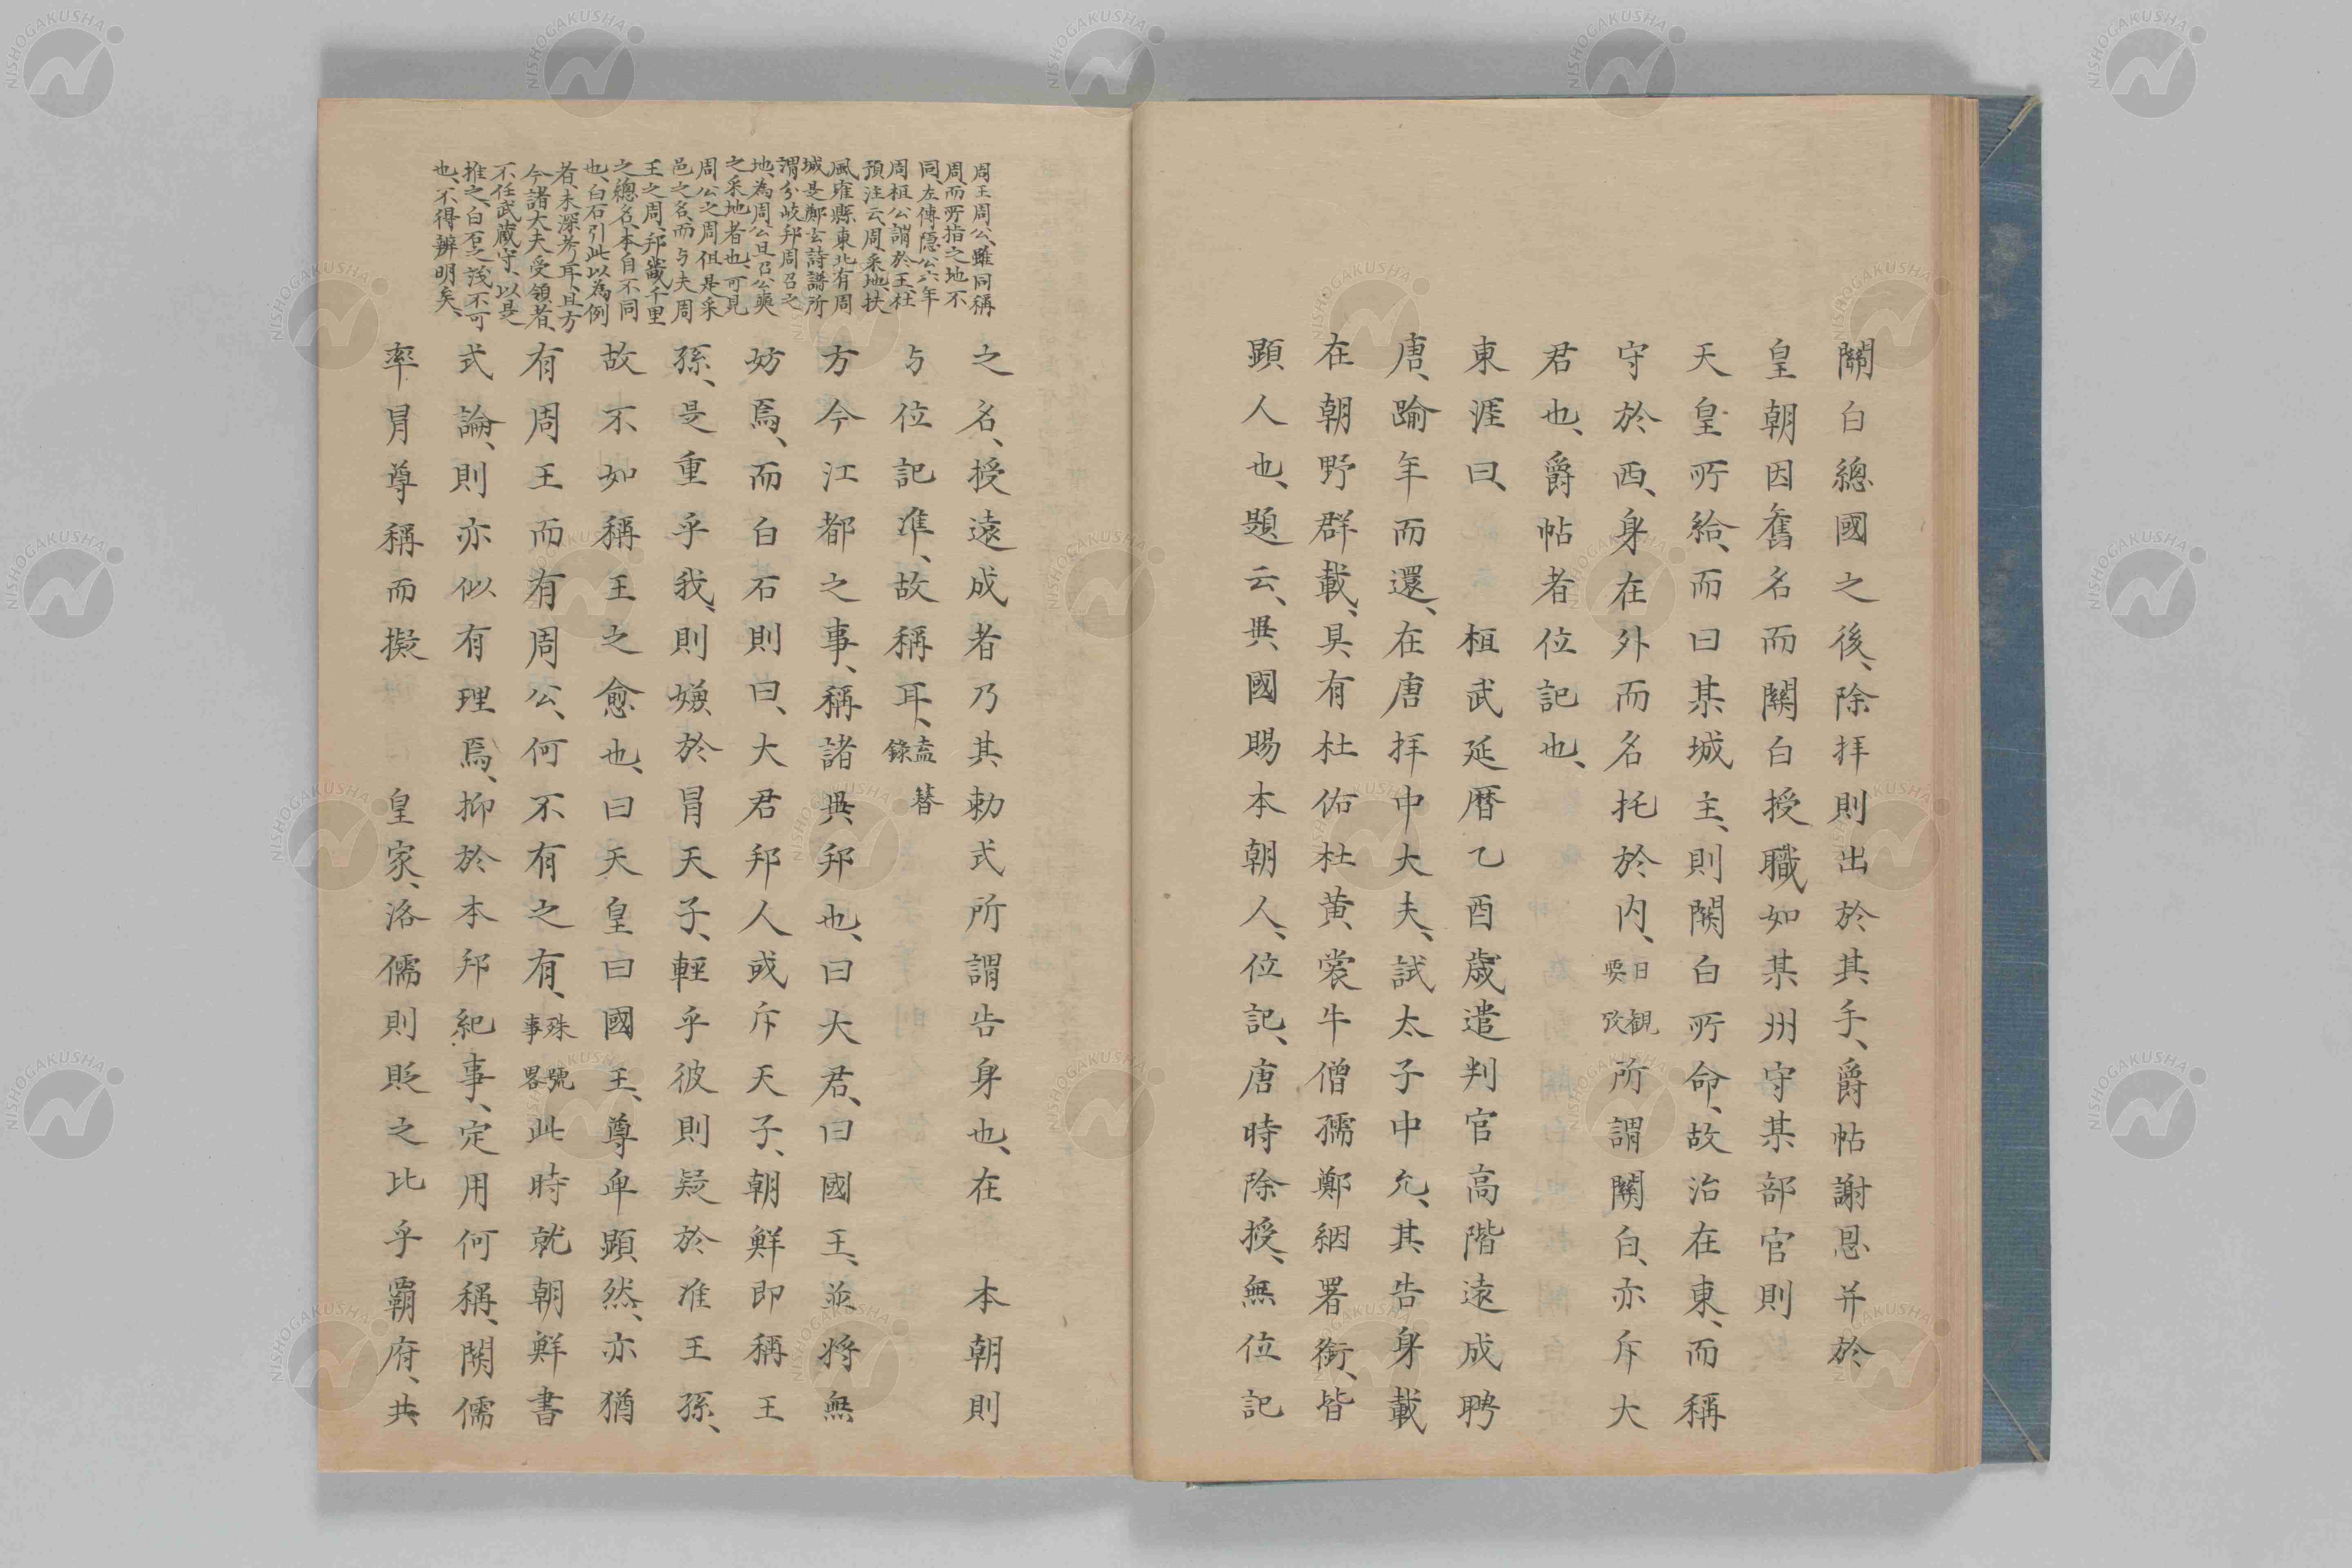 關白總國之後、除拝則出於其手、爵帖謝恩并於
皇朝因舊名而關白授職如某州守某部官則
天皇所給、而曰某城主、則關白所命、故治在東、而稱
守於西、身在外而名托於内、日観要攷所謂關白、亦斥大
君也、爵帖者位記也、
東涯曰、桓武延暦乙酉歳遣判官高階遠成聘
唐、踰年而還、在唐拝中大夫、試太子中允、其告身載
在朝野群載、具有杜佑杜黄裳牛僧孺鄭絪署銜、皆
顕人也、題云、異國賜本朝人、位記、唐時除授、無位記
之名、授遠成者乃其勅式所謂告身也、在本朝則
与位記準、故稱耳、盍簪録
方今江都之事、稱諸異邦也、曰大君、曰國王、並将無
妨焉、而白石則曰、大君邦人或斥天子、朝鮮即稱王
孫、是重乎我、則嫌於冒天子、輕乎彼則疑於准王孫、
故不如稱王之愈也、曰天皇曰國王、尊卑顕然、亦猶
有周王而有周公、何不有之有、殊號事畧此時就朝鮮書
式論、則亦似有理焉、抑於本邦紀事、定用何稱、関儒
率冒尊稱而擬皇家、洛儒則貶之比乎覇府、共
周王周公、雖同稱
周、而所指之地不
同、左傳隠公六年
周桓公謂於王、杜
預注云、周采地、扶
風雍縣東北有周
城、是鄭玄詩譜所
謂分岐邦周召之
地、為周公旦召公奭
之采地者也、可見
周公之周但是采
邑之名、而与夫周
王之周、邦畿千里
之總名、本自不同
也、白石引此以為例
者、未深考耳、且方
今諸大夫受領者、
不任武蔵守、以是
推之、白石之浅、不可
也、不得辨明矣、
NISHOGAKUSHA